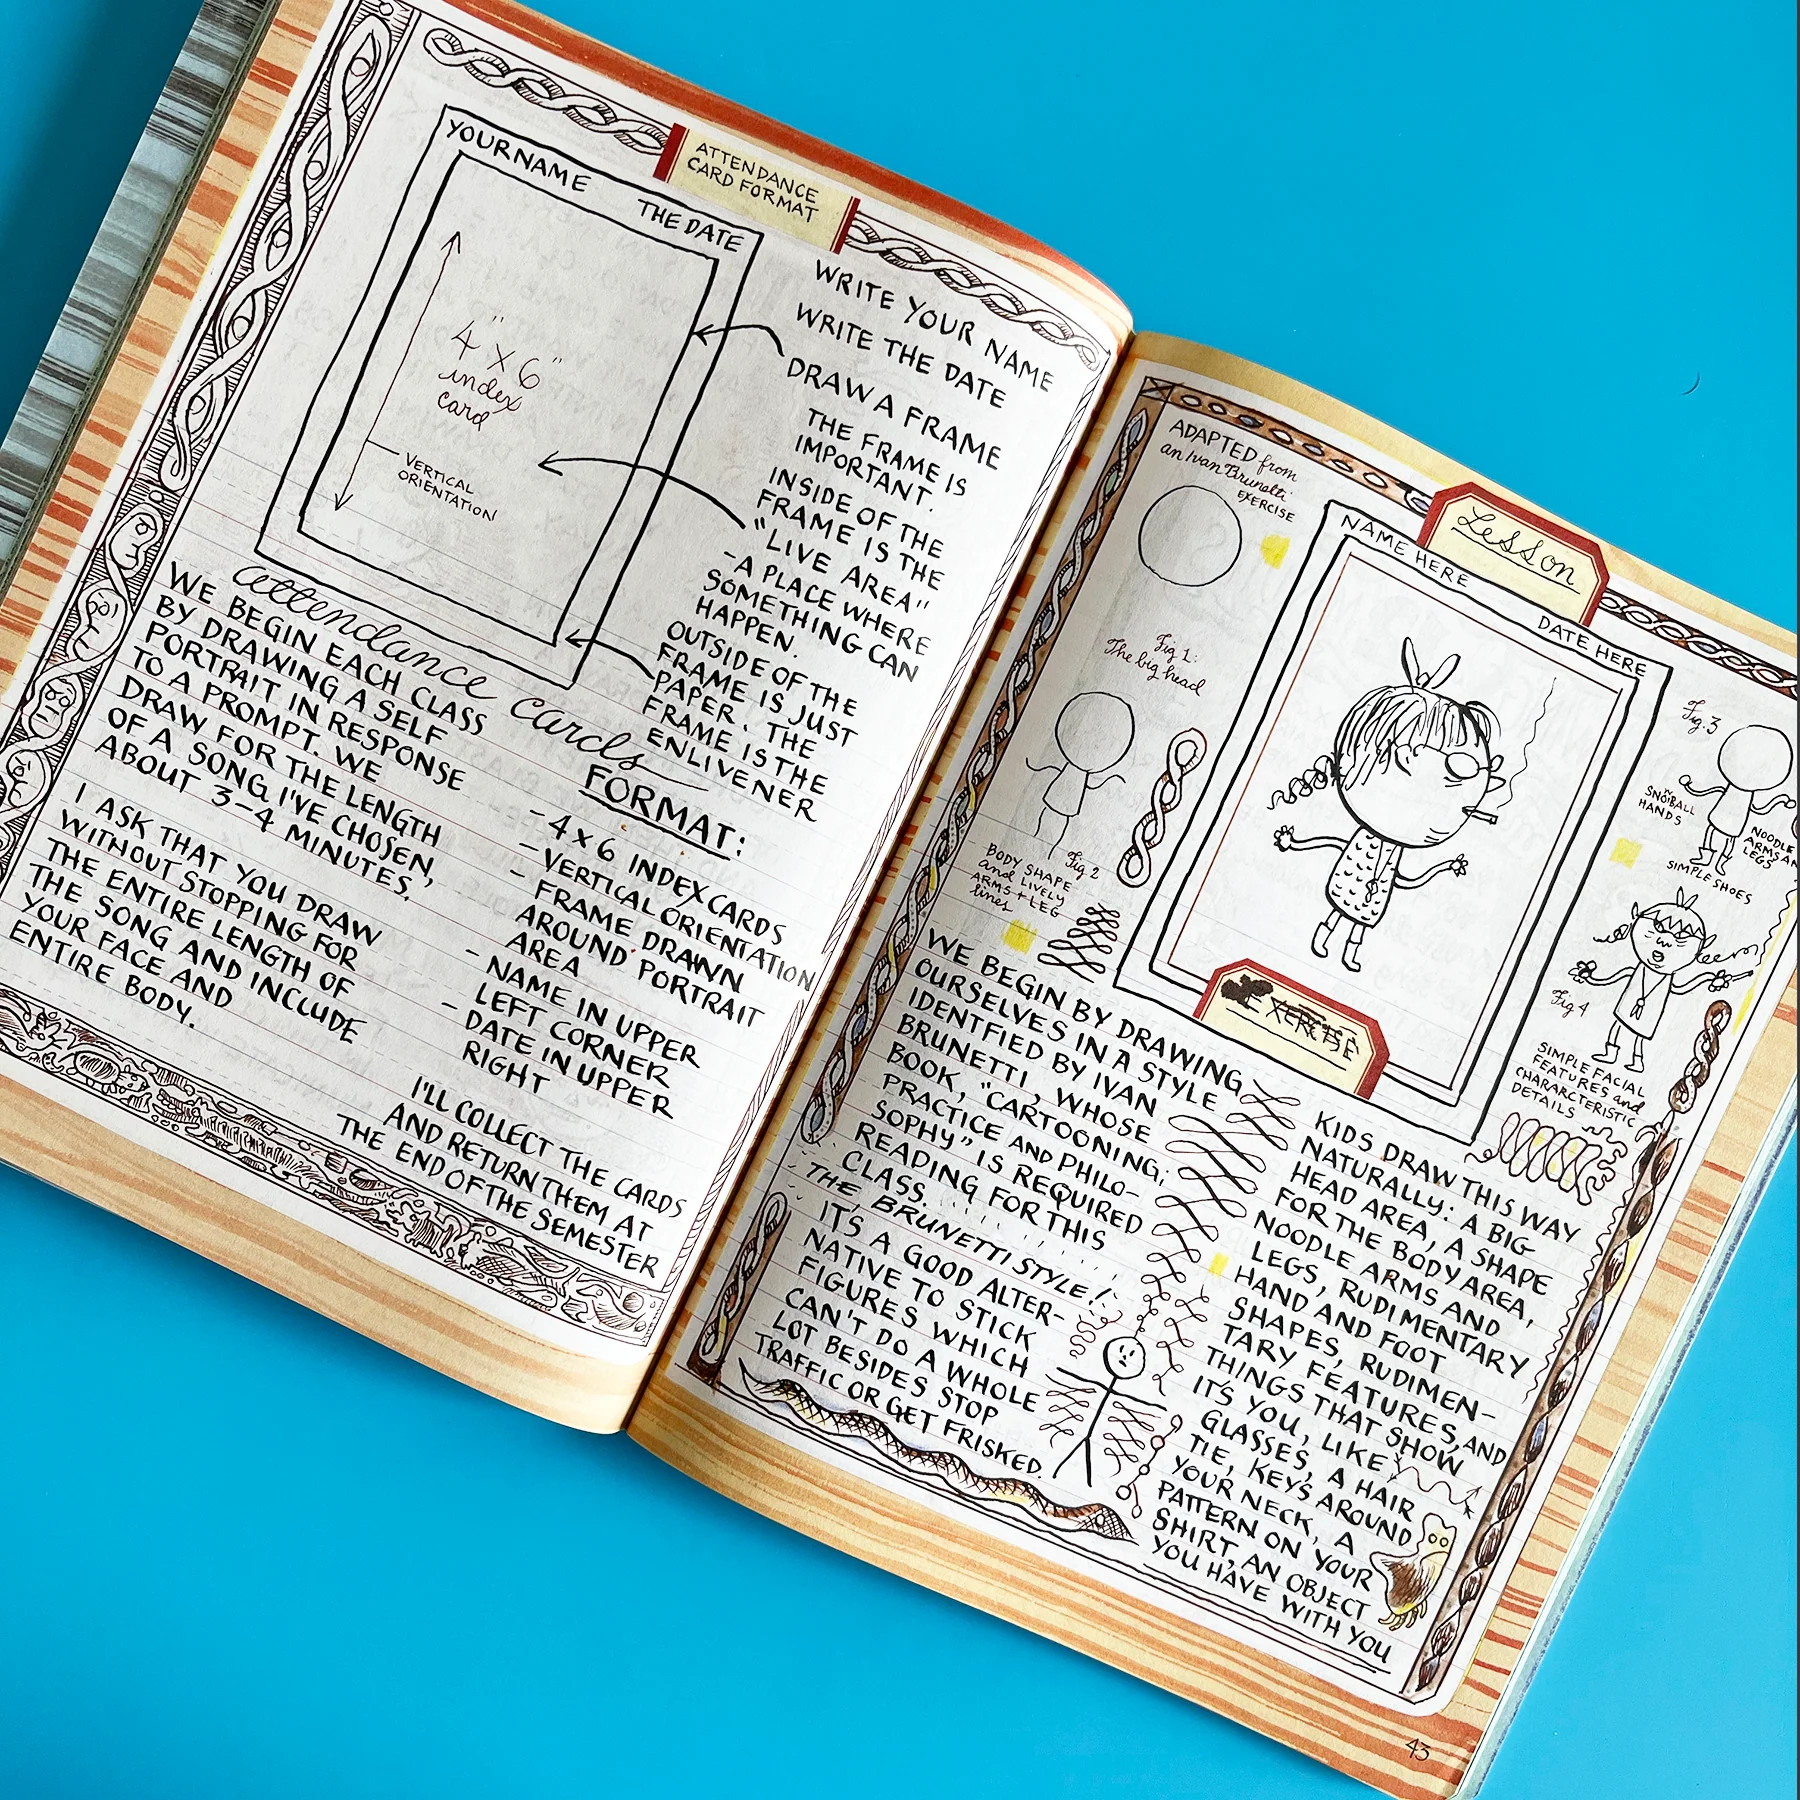 ATTENDANCE
CARD FORMAT
YOUR NAME
THE DATE
4" X 6"
index
card
VERTICAL
ORIENTATION
WRITE YOUR NAME
WRITE THE DATE
DRAW A FRAME
THE FRAME IS
IMPORTANT.
INSIDE OF THE
FRAME IS THE
"LIVE AREA"
-A PLACE WHERE
SOMETHING CAN
HAPPEN.
OUTSIDE OF THE
FRAME IS JUST
PAPER. THE
FRAME IS THE
ENLIVENER
attendance cards
WE BEGIN EACH CLASS
BY DRAWING A SELF
PORTRAIT IN RESPONSE
TO A PROMPT. WE
DRAW FOR THE LENGTH
OF A SONG I'VE CHOSEN,
ABOUT 3-4 MINUTES.
I ASK THAT YOU DRAW
WITHOUT STOPPING FOR
THE ENTIRE LENGTH OF
THE SONG AND INCLUDE
YOUR FACE AND
ENTIRE BODY.
FORMAT:
- 4 X 6 INDEX CARDS
- VERTICAL ORIENTATION
- FRAME DRAWN
AROUND PORTRAIT
AREA
- NAME IN UPPER
LEFT CORNER
- DATE IN UPPER
RIGHT
I'LL COLLECT THE CARDS
AND RETURN THEM AT
THE END OF THE SEMESTER
Lesson
ADAPTED from
an Ivan Brunetti
EXERCISE
Fig 1:
The big head
Fig 2
BODY SHAPE
and LIVELY
ARMS + LEG
lines
NAME HERE
DATE HERE
EXERCISE
Fig. 3
SNOWBALL
HANDS
NOODLE
ARMS AN
LEGS
SIMPLE SHOES
Fig 4
SIMPLE FACIAL
FEATURES and
CHARARCTERISTIC
DETAILS
WE BEGIN BY DRAWING
OURSELVES IN A STYLE
IDENTFIED BY IVAN
BRUNETTI, WHOSE
BOOK, "CARTOONING;
PRACTICE AND PHILO-
SOPHY" IS REQUIRED
READING FOR THIS
CLASS.
THE BRUNETTI STYLE!
IT'S A GOOD ALTER-
NATIVE TO STICK
FIGURES WHICH
CAN'T DO A WHOLE
LOT BESIDES STOP
TRAFFIC OR GET FRISKED.
KIDS DRAW THIS WAY
NATURALLY: A BIG
HEAD AREA, A SHAPE
FOR THE BODY AREA,
NOODLE ARMS AND
LEGS, RUDIMENTARY
HAND AND FOOT
SHAPES, RUDIMEN-
TARY FEATURES, AND
THINGS THAT SHOW
IT'S YOU, LIKE
GLASSES, A HAIR
TIE, KEYS AROUND
YOUR NECK, A
PATTERN ON YOUR
SHIRT, AN OBJECT
YOU HAVE WITH YOU
43